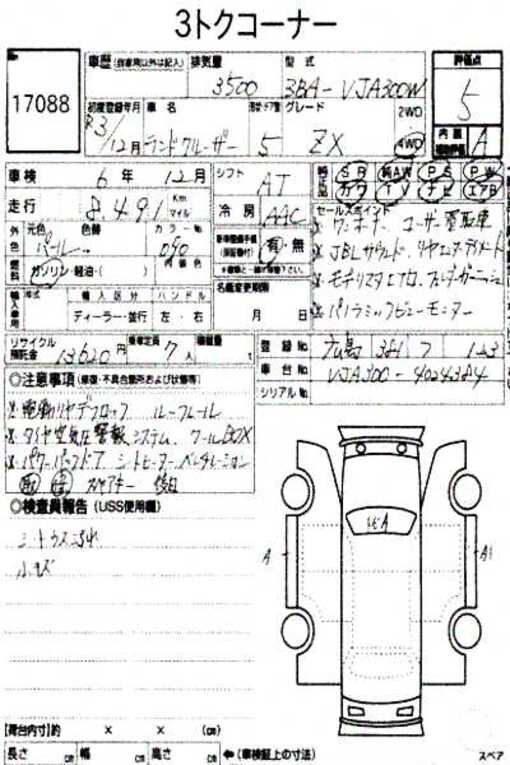 3トクコーナー
No
17088
車歴 (自家用以外は記入)
排気量 3500
型式 3BA-VJA300W
評価点 5
内装 A
初度登録年月 R3/12月
車名 ランドクルーザー
5
グレード ZX
2WD
4WD
車検 6年 12月
シフト AT
SR 純AW PS PW
カワ TV ナビ エアB
走行 8,491 Km マイル
冷房 AAC
セールスポイント
外色 元色 パール 色替 カラーNo 090
有・無
※ ワンオーナー ユーザー買取車
※ JBLサウンド リヤエンターテイメント
※ モデリスタエアロ
※ パノラミックビューモニター
燃料 ガソリン・軽油・( ) 内装色
名義変更期限 月 日
輸入車用 年式 輸入区分 ハンドル
ディーラー・並行 左・右
リサイクル預託金 13620円
乗車定員 7人
積載量 t
登録No 広島 301 フ 123
車台No VJA300-4024384
シリアルNo
◎注意事項 (修復・不具合箇所および状態等)
※ 電動リヤデフロック ルーフレール
※ タイヤ空気圧警報システム クールBOX
※ パワーバックドア シートヒーター ベンチレーション
スペアキー 後日
◎検査員報告 (USS使用欄)
シートウス汚れ
小キズ
A
A1
[荷台内寸]約 × × (cm)
長さ cm 幅 cm 高さ cm ←(車検証上の寸法)
スペア